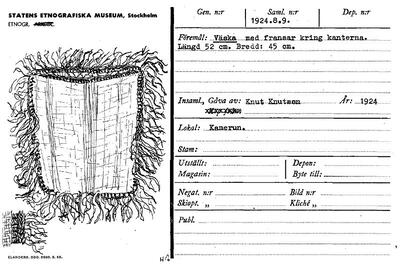 STATENS ETNOGRAFISKA MUSEUM, Stockholm
ETNOGR.
Gen. n:r Saml. n:r Dep. n:r
1924.8.9.
Föremål: Väska med fransar kring kanterna.
Längd 52 cm. Bredd: 45 cm.
Insaml., Gåva av: Knut Knutson År: 1924
Lokal: Kamerun.
Stam:
Utställt: Depon:
Magasin: Byte till:
Negat. n:r Bild n:r
Skiopt. » Kliché »
Publ.